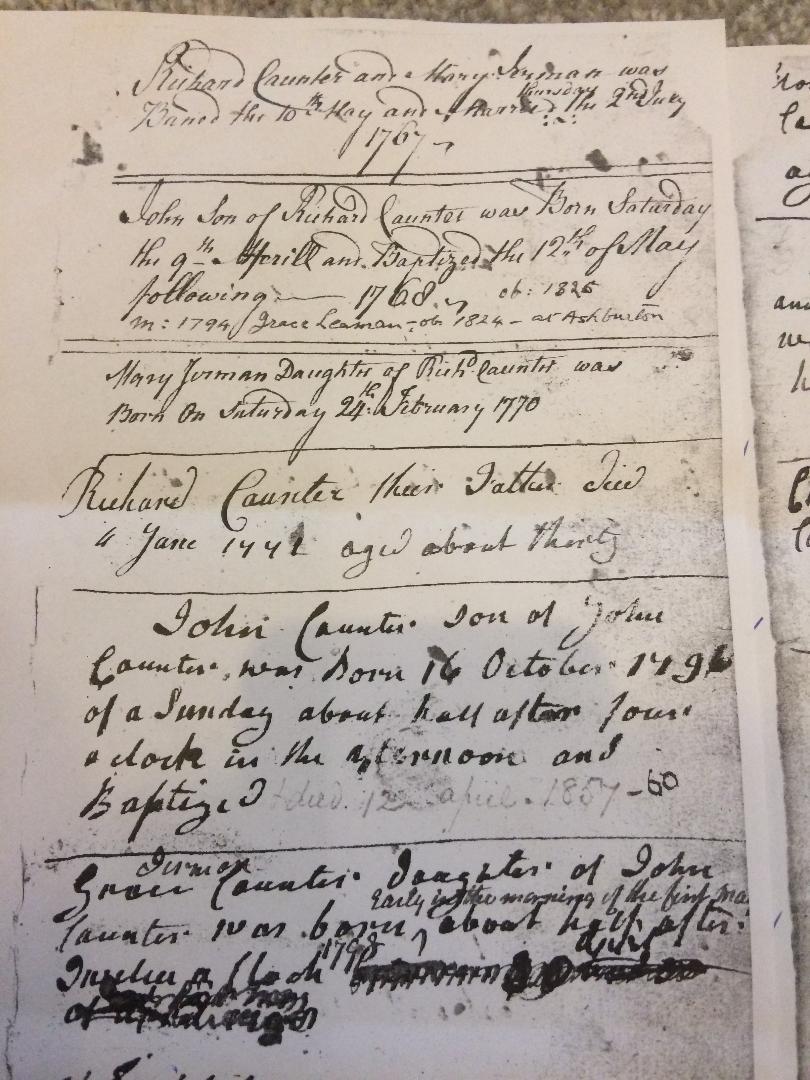 Richard Caunter and Mary Jerman was
Thursday
Baned the 10th May and Married the 2nd July
1767
John Son of Richard Caunter was Born Saturday
the 9th Aperill and Baptized the 12th of May
following 1768 ob: 1825
m: 1794 Grace Leaman - ob 1824 - at Ashburton
Mary Jerman Daughter of Richd Caunter was
Born On Saturday 24th February 1770
Richard Caunter their Father Died
4 June 1772 aged about thirty
John Caunter Son of John
Caunter was Born 16 October 1796
of a Sunday about half after four
a clock in the afternoon and
Baptized died 12 april 1857 - 60
Jerman
Grace Caunter Daughter of John
Early in the morning of the first
Caunter was born, about half after
1798 April
Twelve a Clock